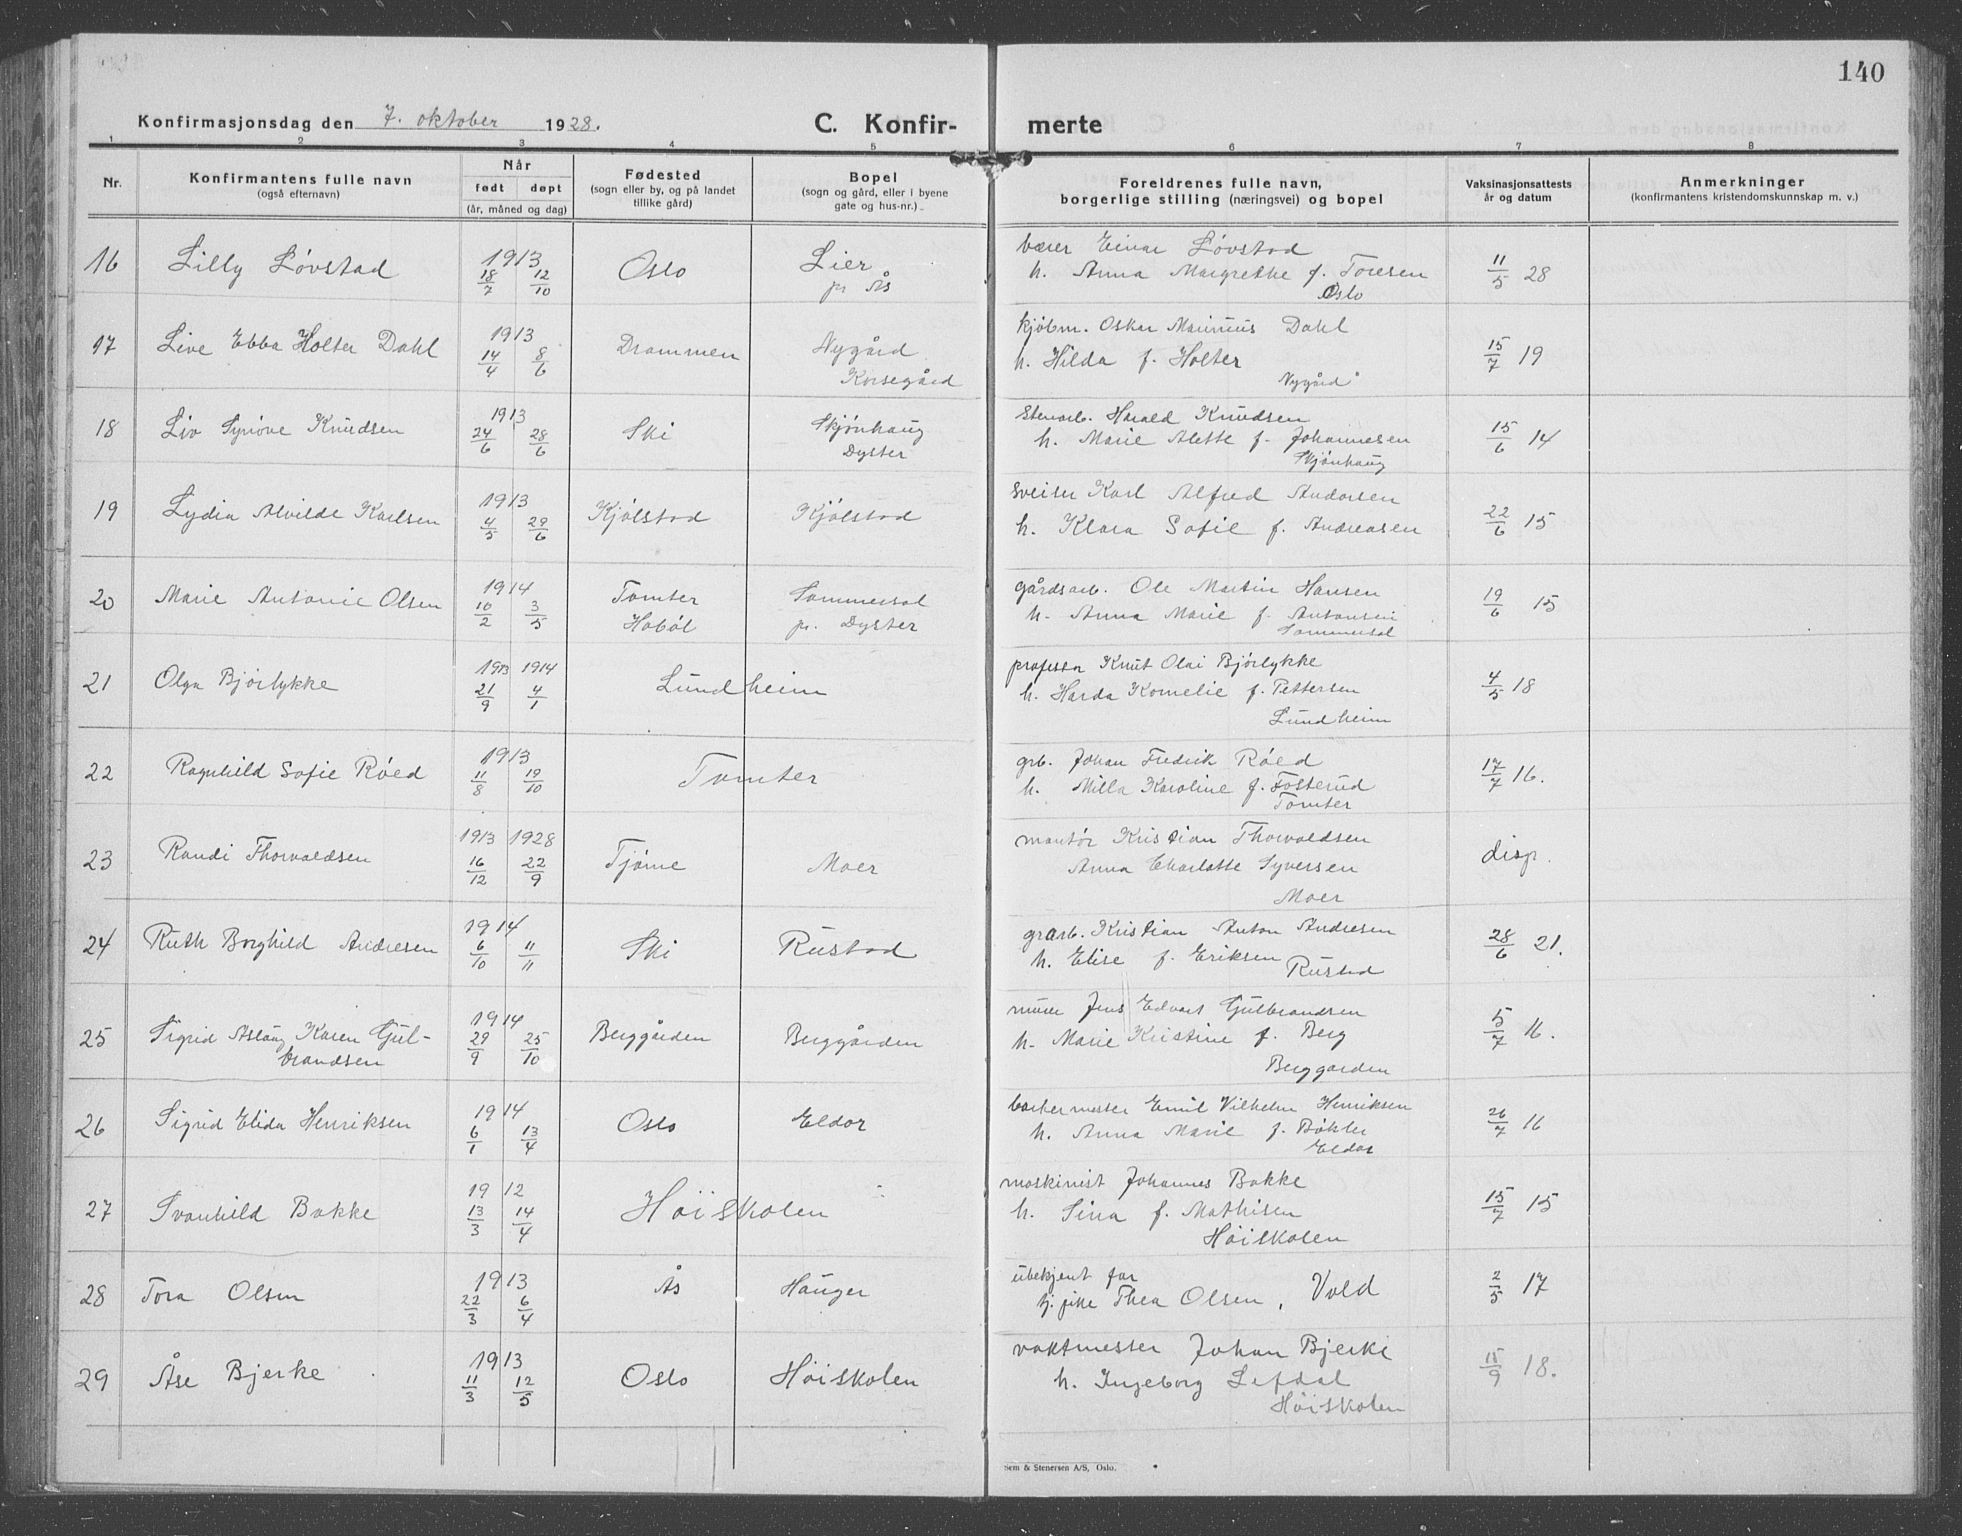 140
Konfirmasjonsdag den 7. oktober 1928.
C. Konfir- merte
1 2 3 4 5 6 7 8
Nr.
Konfirmantens fulle navn
(også efternavn)
Når
født døpt
(år, måned og dag)
Fødested
(sogn eller by, og på landet
tillike gård)
Bopel
(sogn og gård, eller i byene
gate og hus-nr.)
Foreldrenes fulle navn,
borgerlige stilling (næringsvei) og bopel
Vaksinasjonsattests
år og datum
Anmerkninger
(konfirmantens kristendomskunnskap m. v.)
16 Lilly Løvstad 1913 18/7 12/10 Oslo Lier
pr Ås
Einar Løvstad
h. Anna Margrethe f. Toresen
Oslo
11/5 28
17 Live Ebba Holter Dahl 1913 14/4 8/6 Drammen Nygård
Korsegård
kjøbm. Oskar Marinius Dahl
h. Hilda f. Holter
Nygård
15/7 19
18 Liv Synøve Knudsen 1913 24/6 28/6 Ski Skjønhaug
Dyster
Stenarb. Harald Knudsen
h. Marie Alette f. Johannesen
Skjønhaug
15/6 14
19 Lydia Alvilde Karlsen 1913 4/5 29/6 Kjølstad Kjølstad
sveiser Karl Alfred Andersen
h. Klara Sofie f. Andreasen
22/6 15
20 Marie Antonie Olsen 1914 10/2 3/5 Tomter
Hobøl
Sommersol
pr. Dyster
gårdsarb. Ole Martin Hansen
h. Anna Marie f. Antonsen
Sommersol
19/6 15
21 Olga Bjørlykke 1913 1914 21/9 4/1 Lundheim
professor Knut Olai Bjørlykke
h. Harda Kornelie f. Pettersen
Lundheim
4/5 18
22 Ragnhild Sofie Røed 1913 11/8 19/10 Tomter
grb. Johan Fredrik Røed
h. Milla Karoline f. Fosterud
Tomter
17/7 16.
23 Randi Thorvaldsen 1913 1928 16/12 22/9 Tjøme Moer
montør Kristian Thorvaldsen
Anna Charlotte Syversen
Moer
disp.
24 Ruth Borghild Andresen 1914 6/10 11/11 Ski Rustad
grarb. Kristian Anton Andresen
h. Elise f. Eriksen
Rustad
28/6 21.
25 Sigrid Aslaug Karen Gul-
brandsen
1914 29/9 25/10 Berggården Berggården
murer Jens Edvart Gulbrandsen
h. Marie Kristine f. Berg
Berggården
5/7 16.
26 Sigrid Elida Henriksen 1914 6/1 13/4 Oslo Eldor
barbermester Emil Vilhelm Henriksen
h. Anna Marie f. Bøhler
Eldor
26/7 16
27 Svanhild Bakke 1912 13/3 14/4 Höiskolen
maskinist Johannes Bakke
h. Sina f. Mathisen
Höiskolen
15/7 15
28 Tora Olsen 1913 22/3 6/4 Ås Hauger
ubekjent far
tj. pike Thea Olsen, Vold
2/5 17
29 Åse Bjerke 1913 11/3 12/5 Oslo Höiskolen
vaktmester Johan Bjerke
h. Ingeborg Lefdal
Höiskolen
15/9 18.
Sem & Stenersen A/S, Oslo.